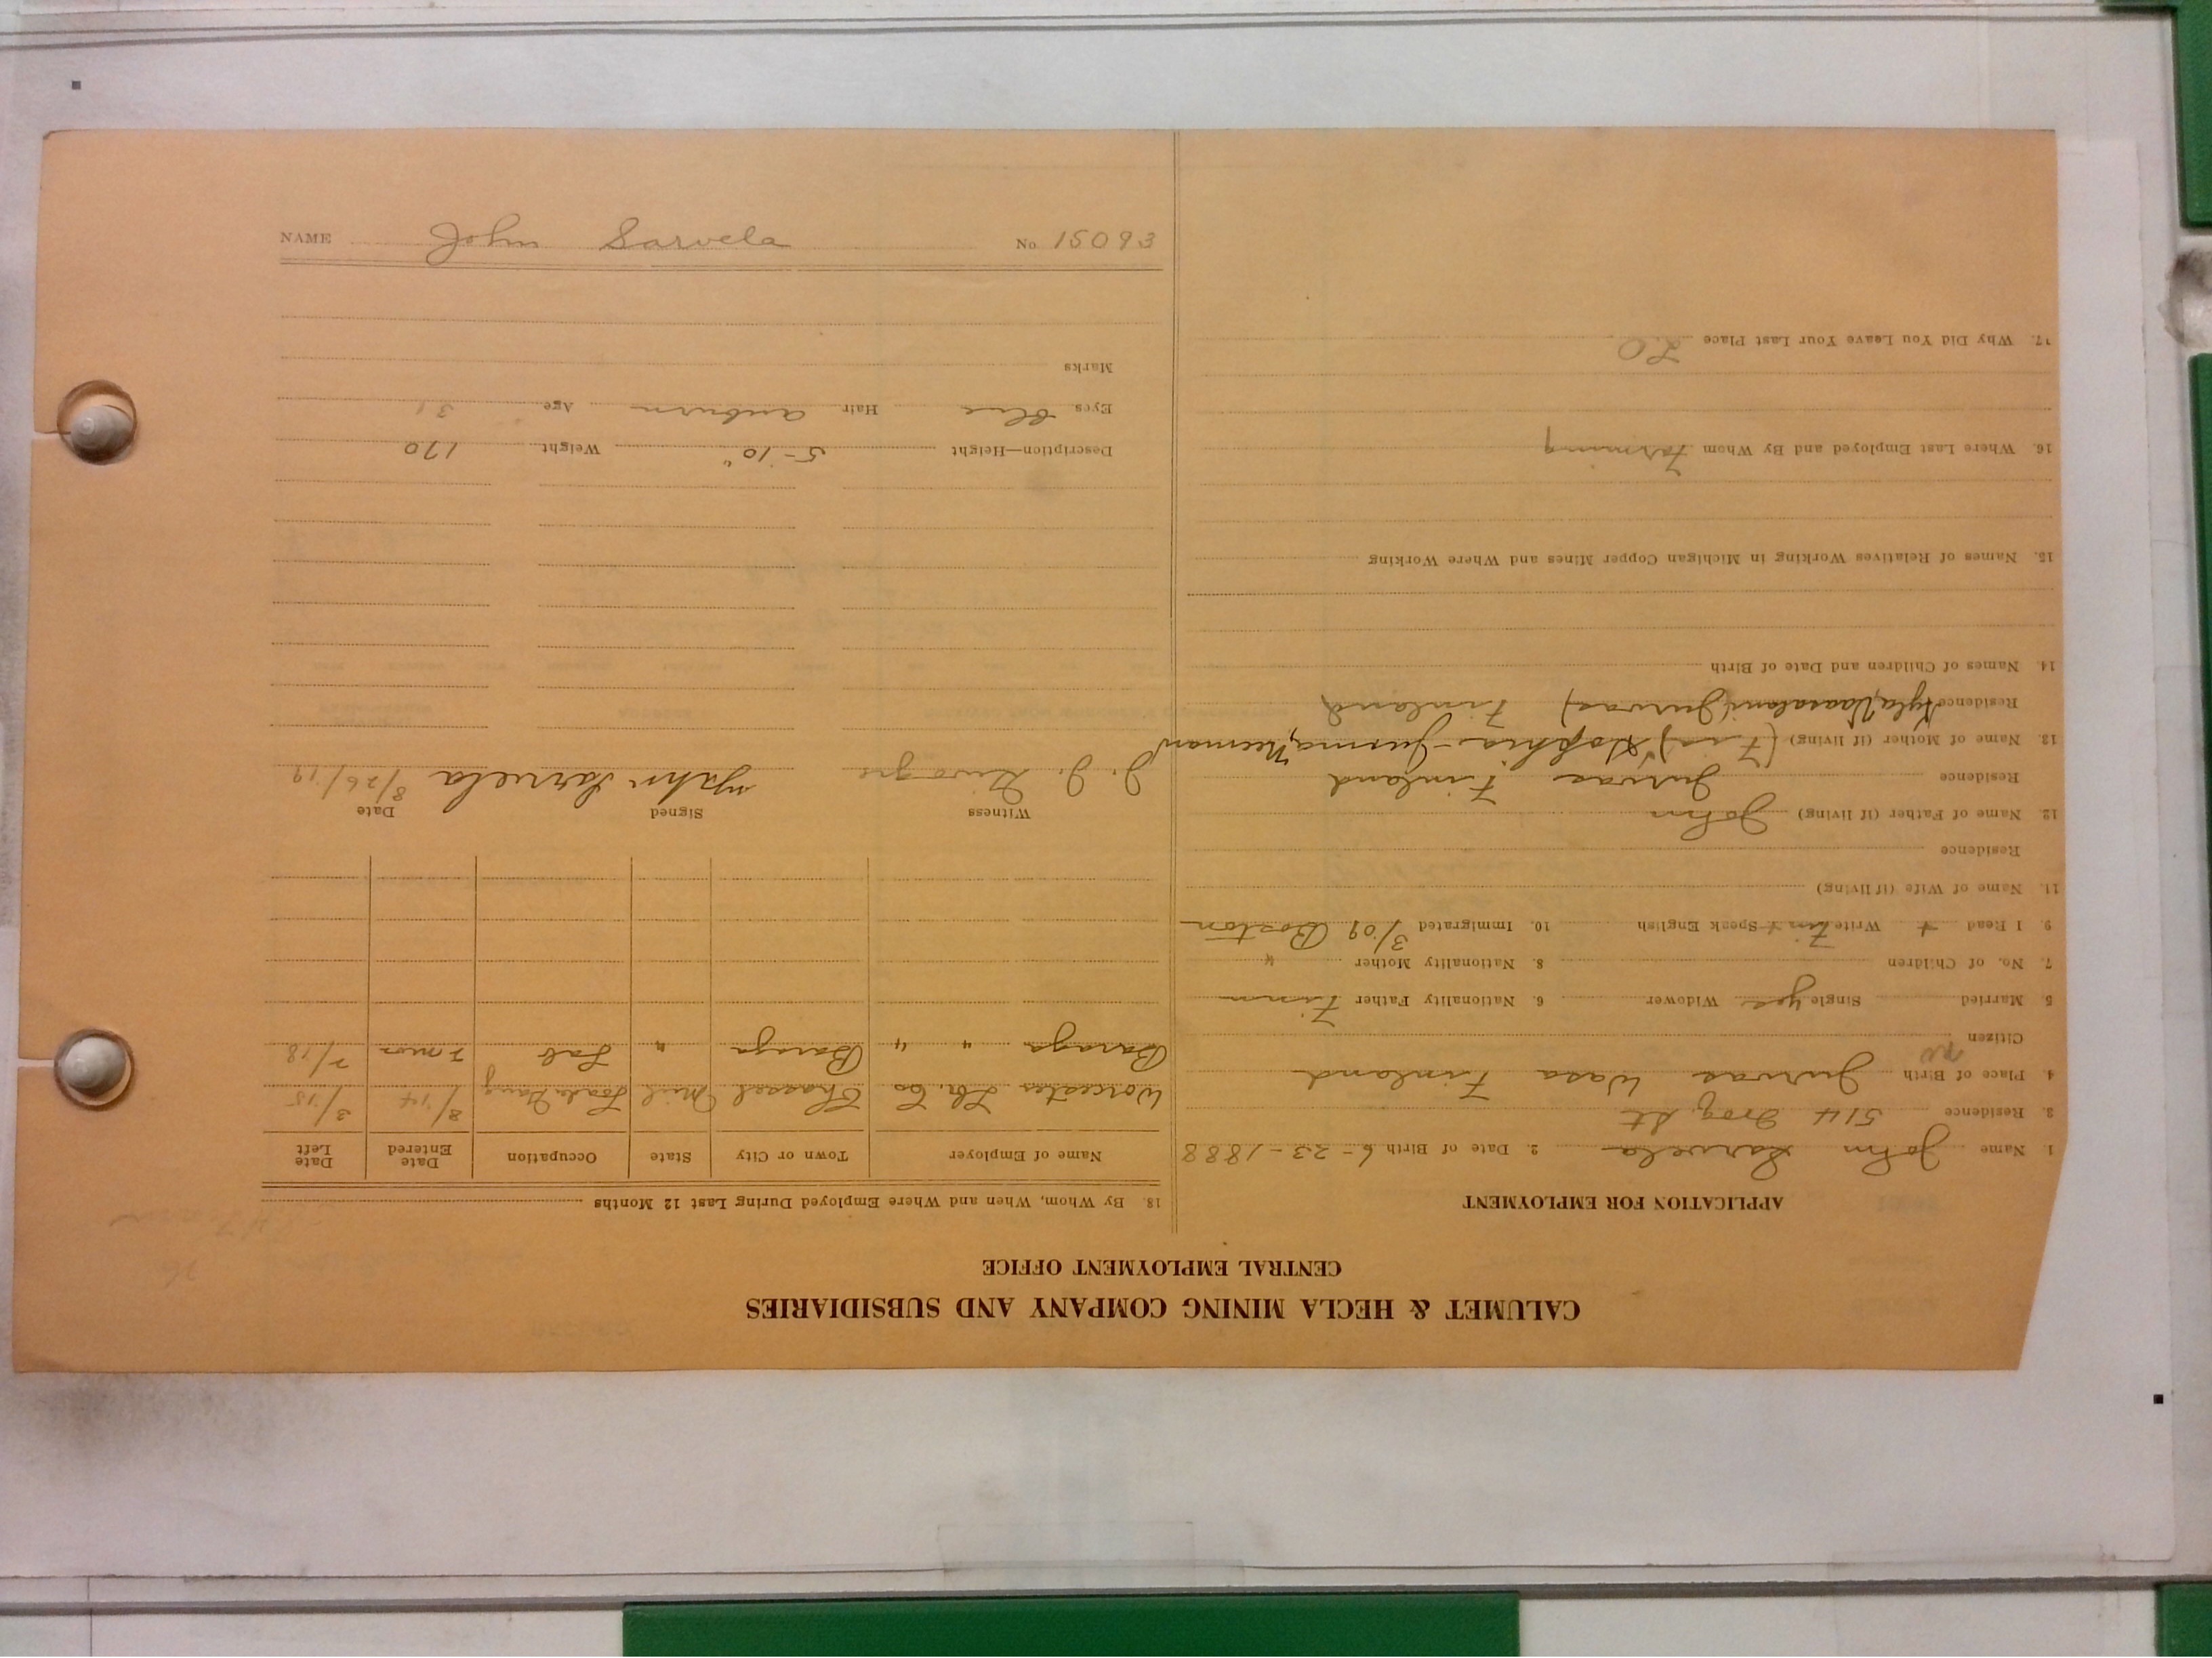 CALUMET & HECLA MINING COMPANY AND SUBSIDIARIES
CENTRAL EMPLOYMENT OFFICE
APPLICATION FOR EMPLOYMENT
1. Name John Sarvela 2. Date of Birth 6-23-1888
3. Residence 514 St
4. Place of Birth Jurvas Wasa Finland
Citizen no
5. Married Single yes Widower 6. Nationality Father Finn
7. No. of Children 8. Nationality Mother "
9. I Read + Write Finn + Speak English 10. Immigrated 3/09 Boston
11. Name of Wife (if living)
Residence
12. Name of Father (if living) John
Residence Jurvas Finland
13. Name of Mother (if living) Sophia
Residence Kyla, (Jurvas) Finland
14. Names of Children and Date of Birth
15. Names of Relatives Working in Michigan Copper Mines and Where Working
16. Where Last Employed and By Whom Farming
17. Why Did You Leave Your Last Place L.O
18. By Whom, When and Where Employed During Last 12 Months
Name of Employer Town or City State Occupation Date Entered Date Left
Worcester Lbr. Co Chassel Mich 8/14 3/15
Baraga " " Baraga " Lab 7 mos 7/18
Witness Signed Date
J. J. John Sarvela 8/26/19
Description—Height 5-10" Weight 170
Eyes blue Hair auburn Age 31
Marks
NAME John Sarvela No 15093